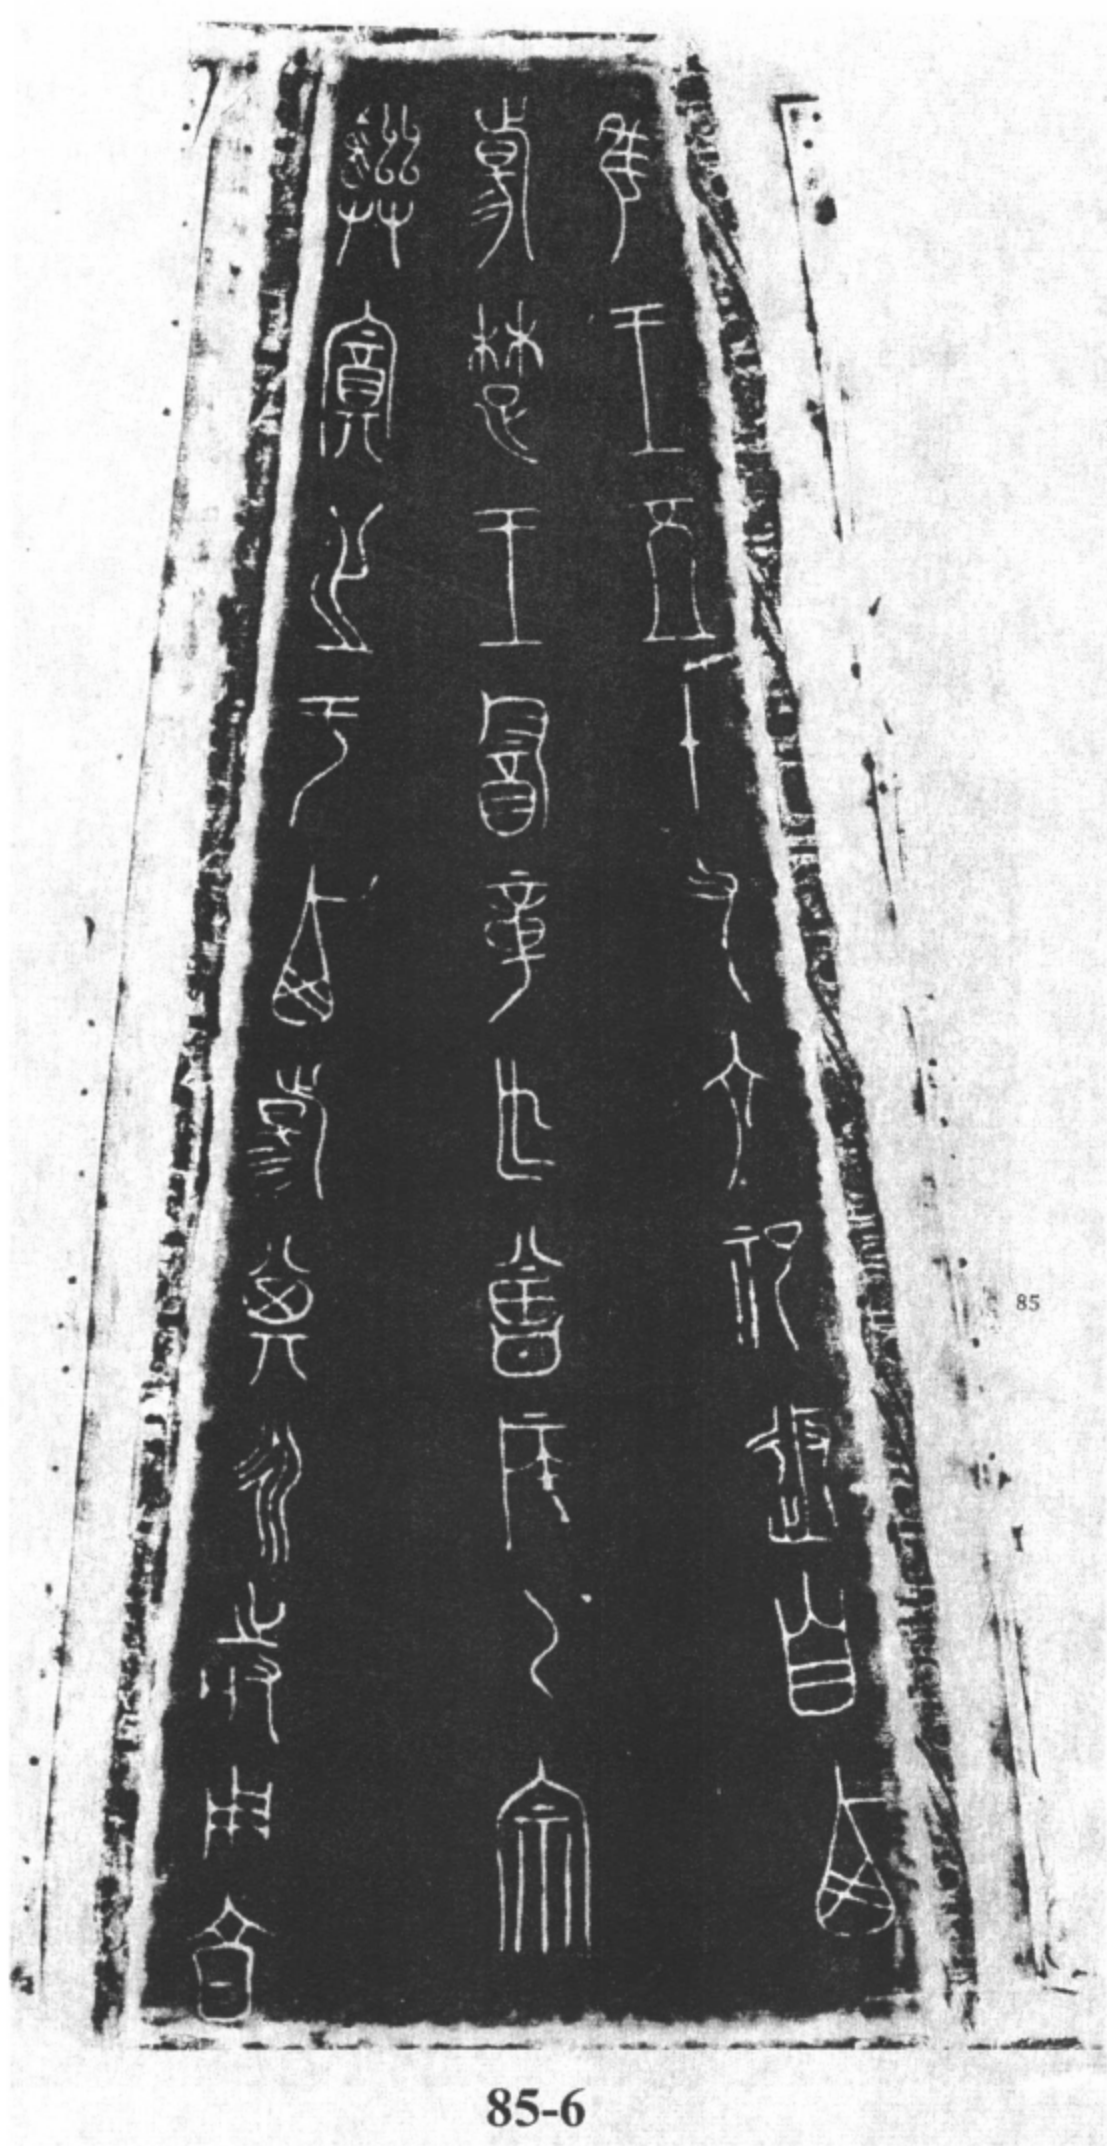 隹王五十又六祀返自西
陽楚王酓章乍曾侯乙宗
彝奠之于西陽其永時用享
85
85-6